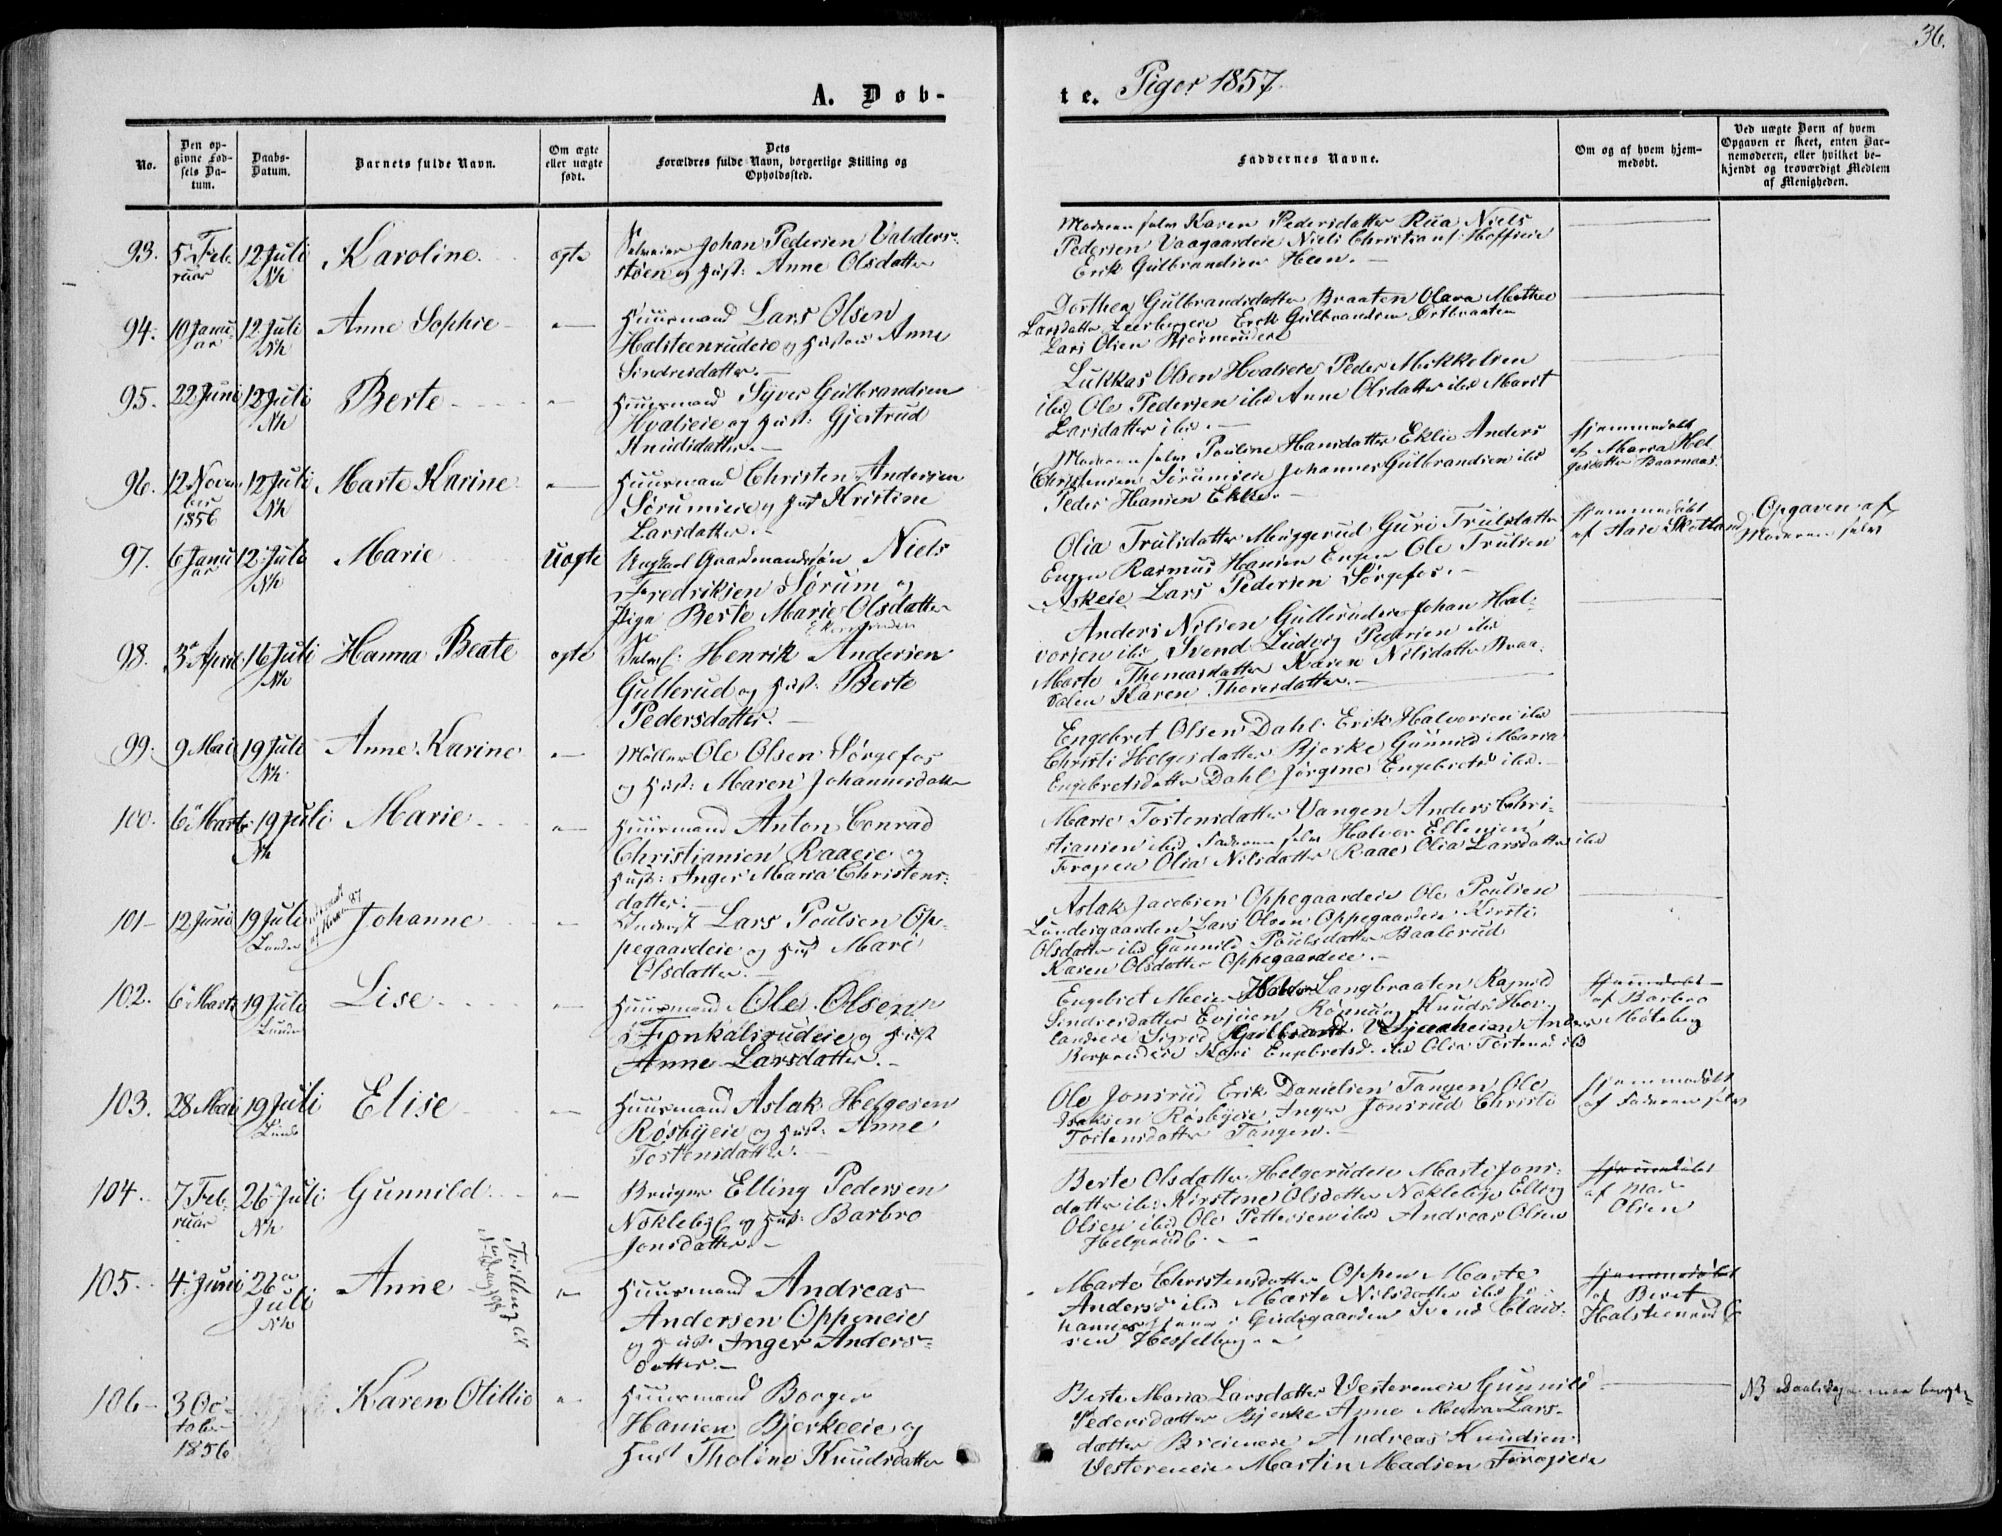 36.
A. Døb-
te. Piger 1857.
No.
Den op-
givne Fød-
sels Da-
tum.
Daabs-
Datum.
Barnets fulde Navn.
Om ægte
eller uægte
født.
Dets
Forældres fulde Navn, borgerlige Stilling og
Opholdssted.
Faddernes Navne.
Om og af hvem hjem-
medøbt.
Ved uægte Børn af hvem
Opgaven er skeet, enten Bar-
nemoderen, eller hvilket be-
kjendt og troværdigt Medlem
af Menigheden.
93. 5 Feb-
ruar
12 Juli
Nh
Karoline
ægte
Selveier Johan Pedersen Valders-
støen og Hust: Anne Olsdatter
Moderen selv Karen Pedersdatter Rua Niels
Pedersen Vaagaardeie Niels Christians:
Erik Gulbrandsen Heen.
94. 10 Janu-
ar
12 Juli
Nh
Anne Sophie
Huusmand Lars Olsen
Halsteenrudeie og Hustru Anne
Sindresdatter.
Dorthea Gulbrandsdatter Braaten Olava Marthee
Larsdatter Erik Gulbrandsen
Lars Olsen
95. 22 Juni
12 Juli
Nh
Berte
Huusmand Syver Gulbrandsen
Hvalseie og Hust: Gjertrud
Knudsdatter.
Lukkas Olsen Hvalseie Peder Mikkelsen
ibd Ole Pedersen ibd Anne Olsdatter ibd Marit
Larsdatter ibd.
96. 12 Novem
ber
1856
12 Juli
Nh
Marte Karine
Huusmand Christen Andersen
Sørumseie og Hust Kristine
Larsdatter.
Moderen selv Pauline Hansdatter Eklie Anders
Christensen Sørumseie Johannes Gulbrandsen ibd
Peder Hansen Eklie.
Hjemmedøbt
af Maria Hel
gesdatter
97. 6 Janu
ar
12 Juli
Nh
Marie
uægte
Ungkarl Gaardmandssøn Niels
Fredriksen Sørum og
Pige Berte Marie Olsdatter
Olia Trulsdatter Muggerud Guri Trulsdatter
Engen Rasmus Hansen Engen Ole Trulsen
Askeie Lars Pedersen Sørgefos.
Hjemmedøbt
af Aase Skotland
Opgaven af
Moderen selv
98. 3 April
16 Juli
Nh
Hanna Beate
ægte
Selve: Henrik Andersen
Gullerud og Hust: Berte
Pedersdatter.
Anders Nilsen Gullerudeie Johan Hal-
vorsen ibd Svend Ludvig Pedersen ibd
Marte Thomasdatter Karen Nilsdatter Braa-
Karen Thoresdatter.
99. 9 Mai
19 Juli
Nh
Anne Karine
Møller Ole Olsen Sørgefos
og Hust: Maren Johannesdatter
Engebret Olsen Dahl Erik Halvorsen ibd
Christi Helgesdatter Bjerke Gunnild Maria
Engebretsdatter Dahl Jørgine Engebrets ibd.
100. 6 Marts
19 Juli
Nh
Marie
Huusmand Anton Conrad
Christiansen Raaeie og
Hust: Inger Maria Christens-
datter.
Marie Tostensdatter Vangen Anders Chri-
stiansen ibd Faderen selv Halvor Ellensen
Olia Nilsdatter Raae Olia Larsdatter ibd
101 12 Juni
19 Juli
Lunder
Johanne
Inderst Lars Poulsen Op-
pegaardeie og Hust Mari
Olsdatter.
Aslak Jacobsen Oppegaardeie Ole Poulsen
Lundesgaarden Lars Olsen Oppegaardeie Kirsti
Olsdatter ibd Gunnild Poulsdatter Baalerud
Karen Olsdatter Oppegaardeie.
102. 6 Marts
19 Juli
Lunder
Lise
Huusmand Ole Olsen
Fonkalsrudeie og Hust
Anne Larsdatter.
Engebret Langbraaten Ragnild
Sindresdatter Evjeien Rønnaug Knuds
Sigrid Anders
Kari Engebretsd. ibd Olia Tostens ibd
Hjemmedøbt
af Barbro
103. 28 Mai
19 Juli
Lunde
Elise
Huusmand Aslak Helgesen
Røsbyeie og Hust: Anne
Tostensdatter.
Ole Jonsrud Erik Danielsen Tangen Ole
Isaksen Røsbyeie Inger Jonsrud Christi
Tostensdatter Tangen.
Hjemmedøbt
af Faderen selv
104. 7 Feb-
ruar
26 Juli
Nh
Gunnild
Bruger Elling Pedersen
Nøkleby og Hust: Barbro
Jonsdatter.
Berte Olsdatter Helgerudeie Marte Jons-
datter ibd Kirstine Olsdatter Nøklebye Elling
Olsen ibd Ole Pettersen ibd Andreas Olsen
Helgerud
Hjemmedøbt
af
Olsen
105. 4 Juni
26
Juli
Nh
Anne
Tvilling
Huusmand Andreas
Andersen Oppeneie
og Hust: Inger Anders-
datter.
Marte Christensdatter Oppen Marte
Andersd ibd Marte Nilsdatter ibd Jo-
hannes Svend Claus-
sen Hesselberg
Hjemmedøbt
af Beret
Halsteenrud
106 3 Oc-
tober
1856
Karen Otillie
Huusmand Borger
Hansen Bjerkeeie og
Hust Tholine Knudsdatter
Berte Maria Larsdatter Vestereneie Gunnild
Pedersdatter Bjerke Anne Maria Lars-
datter Andreas Knudsen
Vestereneie Martin Madsen
NB